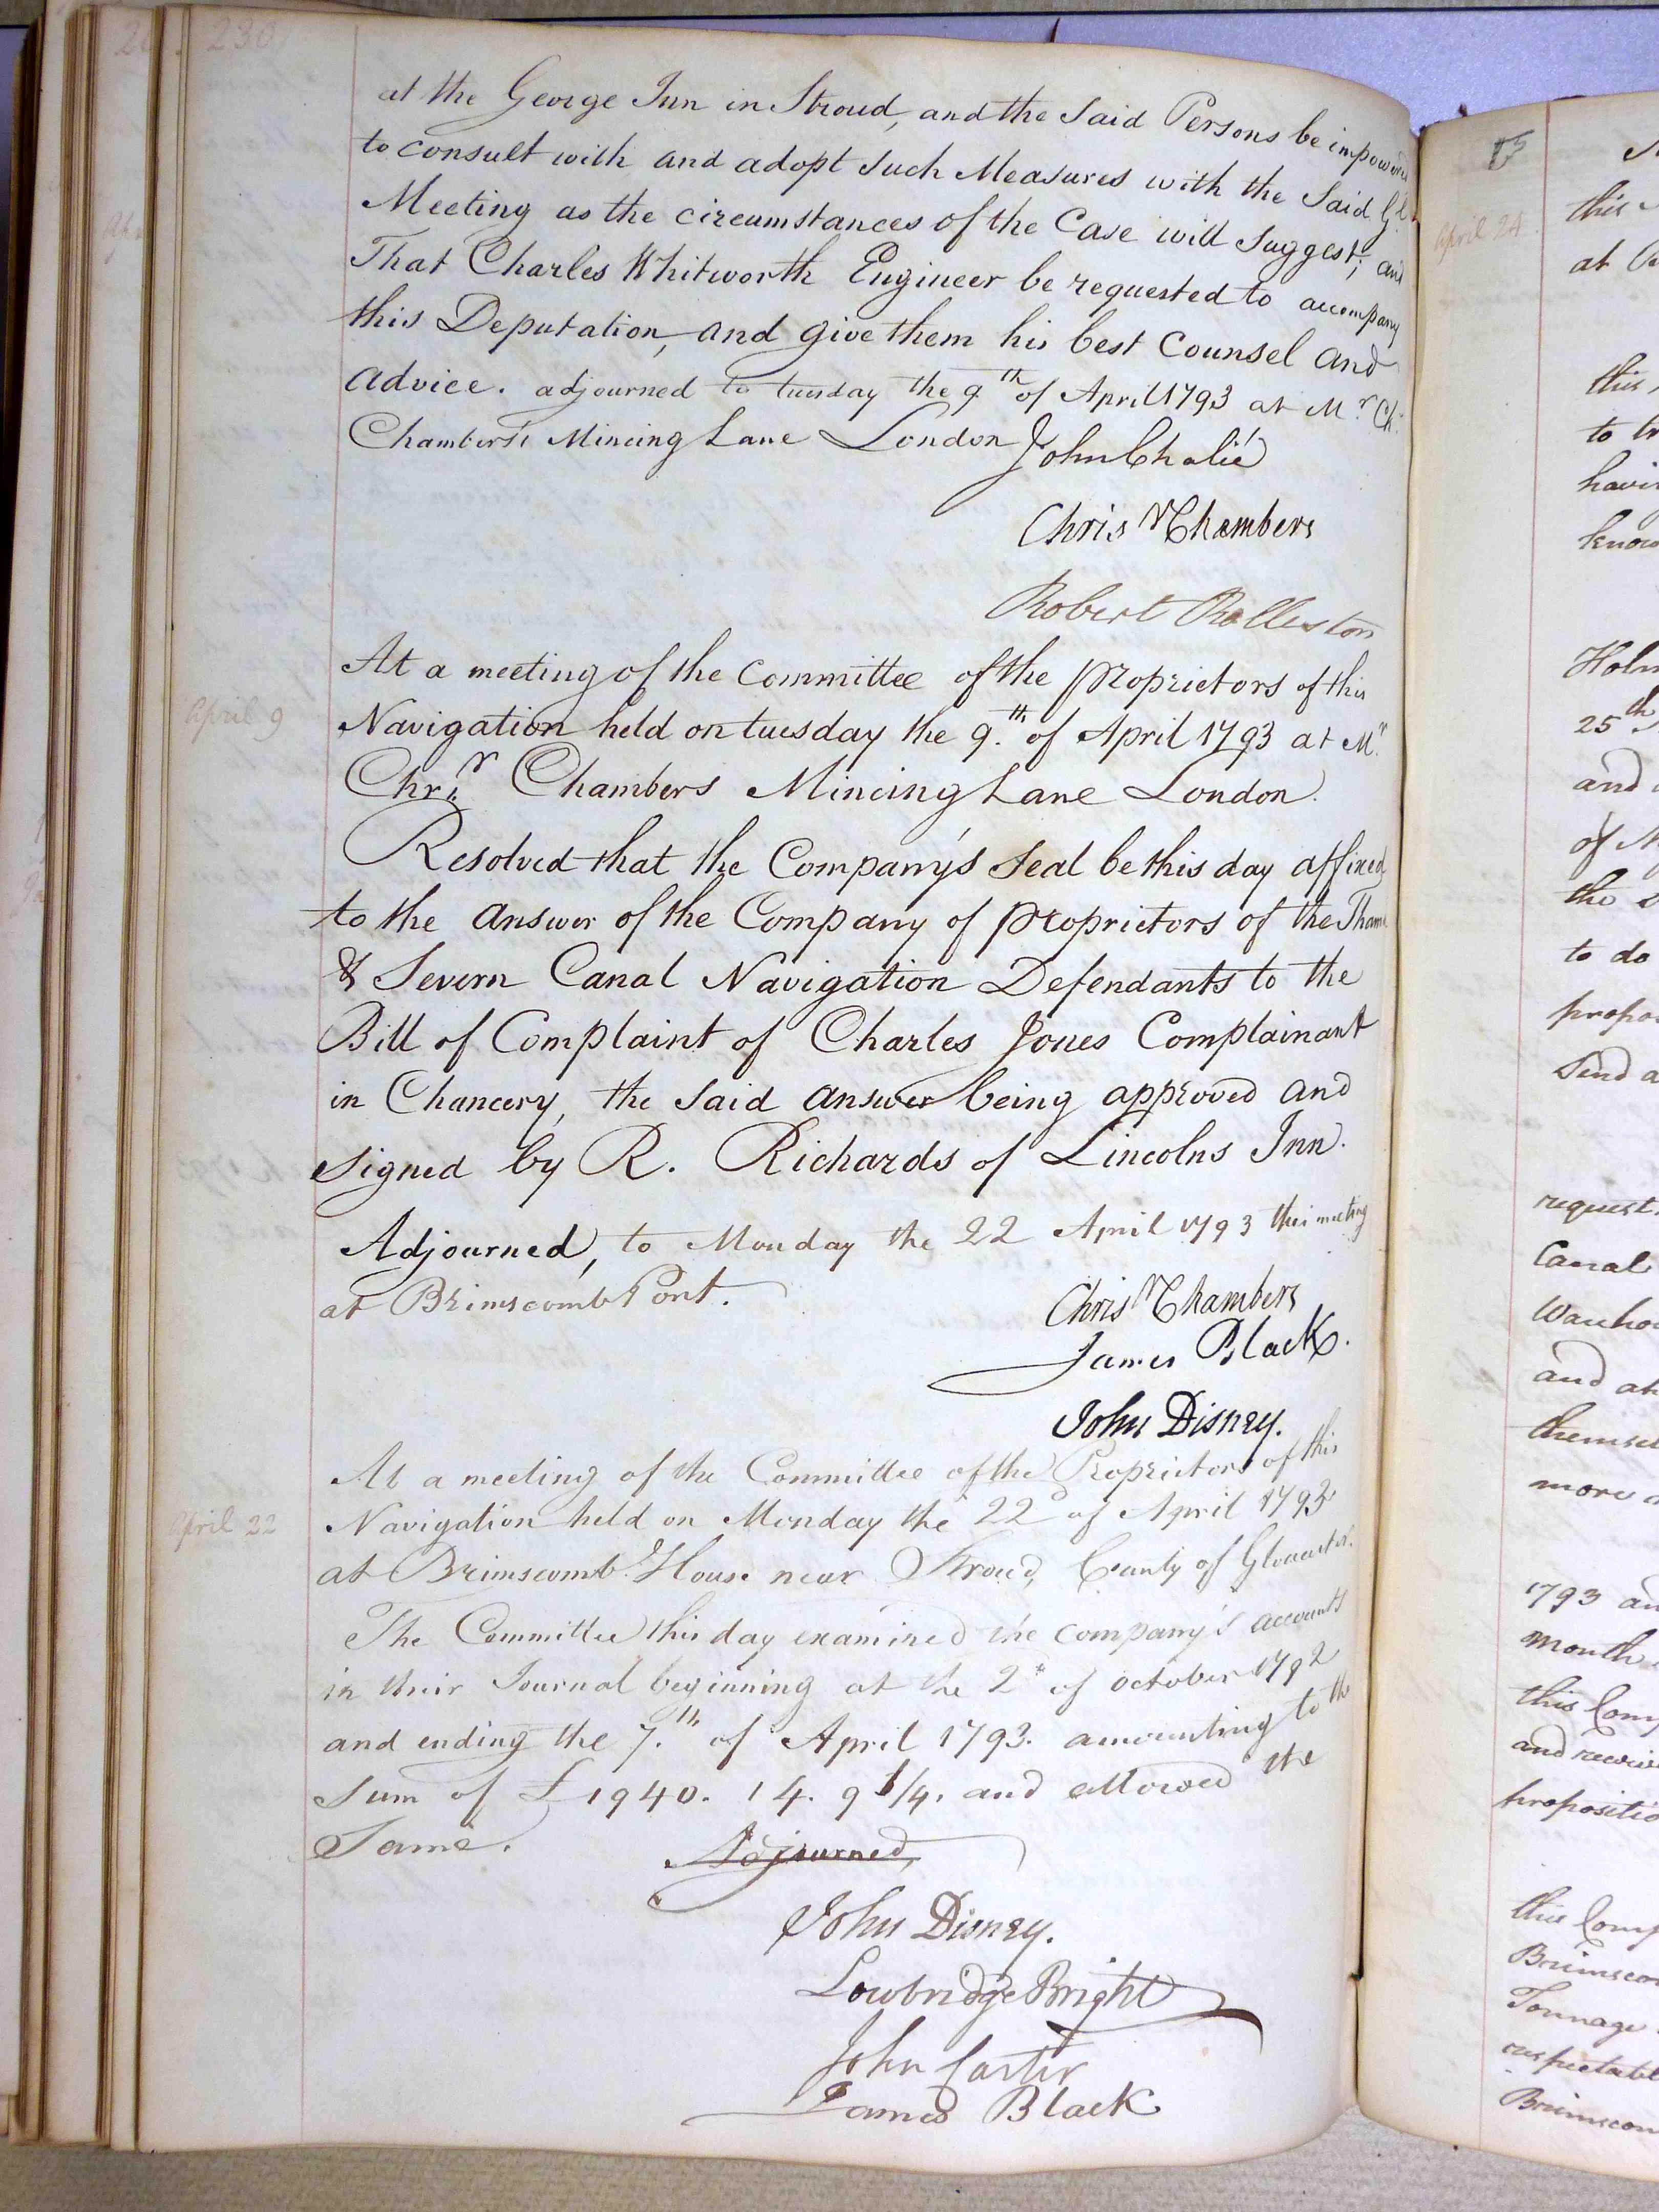 230
at the George Inn in Stroud, and the Said Persons be impowered
to consult with and adopt Such Measures with the Said Gl
Meeting as the circumstances of the Case will Suggest; and
That Charles Whitworth Engineer be requested to accompany
this Deputation, and give them his best Counsel and
advice. adjourned to tuesday the 9th of April 1793 at Mr. Chr.
Chambers's Mincing Lane London John Chalié
Chrisr Chambers
Robert Rolleston
April 9
At a meeting of the Committee of the proprietors of this
Navigation held on tuesday the 9th. of April 1793 at Mr.
Chrr. Chambers Mincing Lane London.
Resolved that the Company's Seal be this day affixed
to the answer of the Company of proprietors of the Thames
& Severn Canal Navigation Defendants to the
Bill of Complaint of Charles Jones Complainant
in Chancery, the Said answer being approved and
signed by R. Richards of Lincolns Inn.
Adjourned, to Monday the 22 April 1793 this meeting
at Brimscomb Port.
Chrisr Chambers
James Black.
John Disney.
April 22
At a meeting of the Committee of the Proprietors of this
Navigation held on Monday the 22d of April 1793
at Brimscomb House near Stroud, County of Gloucester.
The Committee this day examined the company's accounts
in their Journal beginning at the 2d of october 1792
and ending the 7th. of April 1793. amounting to the
Sum of £1940. 14. 9 1/4, and allowed the
Same. Adjourned,
John Disney.
Lowbridge Bright
John Carter
James Black
April 24
this
at
this
to
having
know
Holm
25th
and
of
the
to do
Send a
request
Canal
and
more
1793
month
this Comp
proposition
this Comp
Tonnage